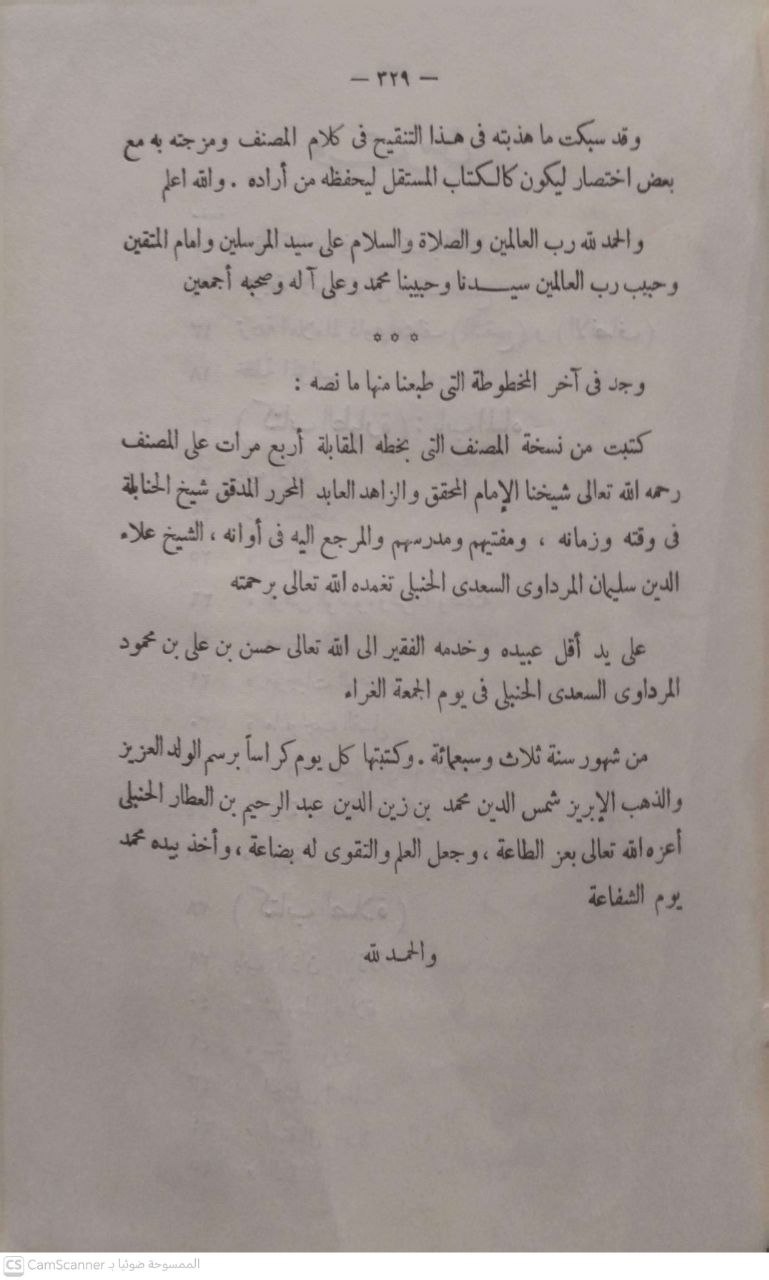 — ٣٢٩ —
وقد سبكت ما هذبته فى هـذا التنقيح فى كلام المصنف ومزجته به مع
بعض اختصار ليكون كالكتاب المستقل ليحفظه من أراده . والله اعلم
والحمد لله رب العالمين والصلاة والسلام على سيد المرسلين وامام المتقين
وحبيب رب العالمين سيـــدنا وحبيبنا محمد وعلى آله وصحبه أجمعين
* * *
وجد فى آخر المخطوطة التى طبعنا منها ما نصه :
كتبت من نسخة المصنف التى بخطه المقابلة أربع مرات على المصنف
رحمه الله تعالى شيخنا الإمام المحقق والزاهد العابد المحرر المدقق شيخ الحنابلة
فى وقته وزمانه ، ومفتيهم ومدرسهم والمرجع اليه فى أوانه ، الشيخ علاء
الدين سليمان المرداوى السعدى الحنبلى تغمده الله تعالى برحمته
على يد أقل عبيده وخدمه الفقير الى الله تعالى حسن بن على بن محمود
المرداوى السعدى الحنبلى فى يوم الجمعة الغراء
من شهور سنة ثلاث وسبعمائة . وكتبتها كل يوم كراساً برسم الولد العزيز
والذهب الإبريز شمس الدين محمد بن زين الدين عبد الرحيم بن العطار الحنبلى
أعزه الله تعالى بعز الطاعة ، وجعل العلم والتقوى له بضاعة ، وأخذ بيده محمد
يوم الشفاعة
والحمـد لله
CS CamScanner الممسوحة ضوئيا بـ